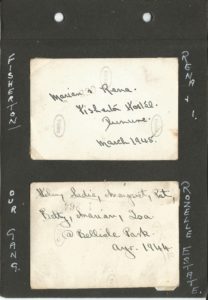 FISHERTON
RENA & I.
Marian & Rena.
Fisherton Hostel.
Dunure.
March 1945.
OUR GANG
ROZELLE ESTATE.
Sadie, Margaret, Pat,
Betty, Marian, Zoa
@ Belleisle Park
Ayr. 1944.